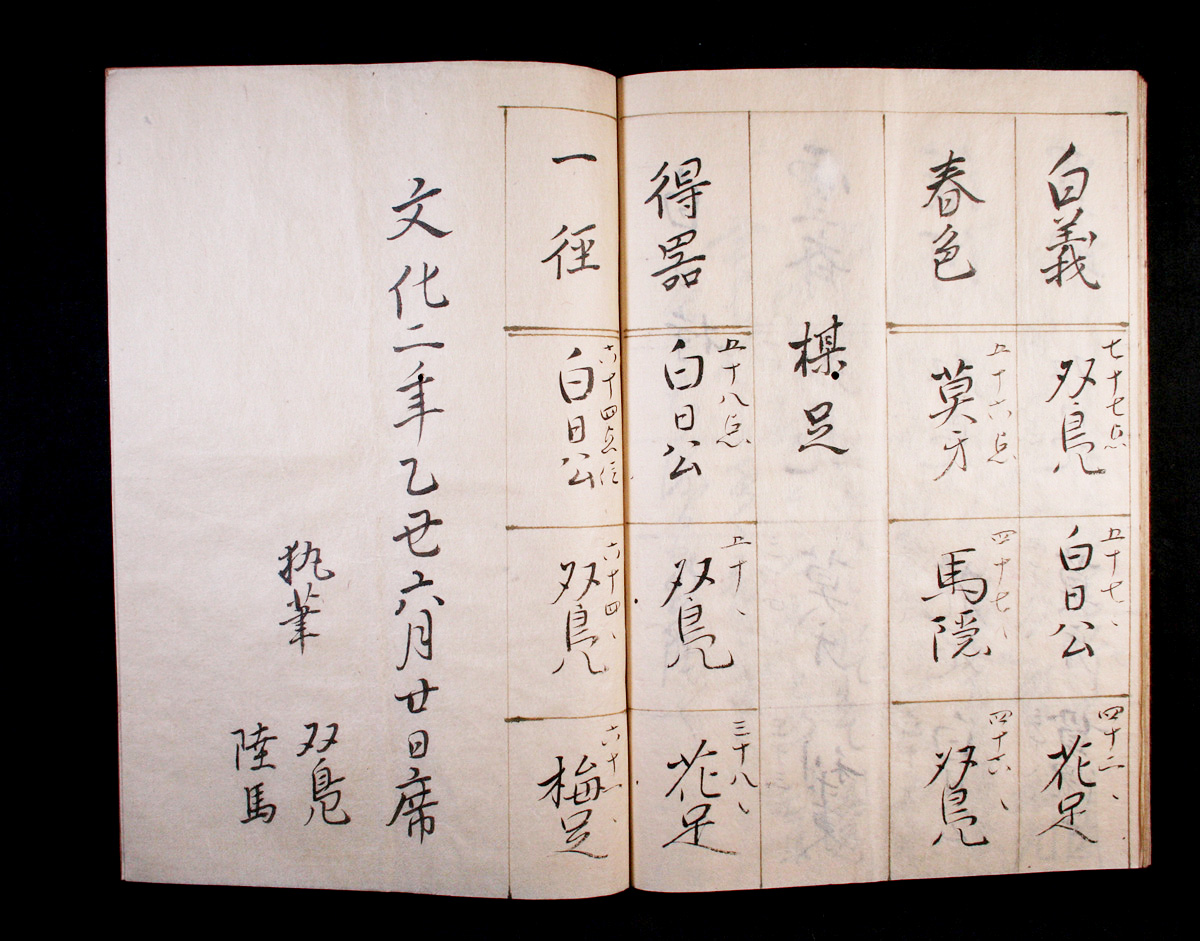 白義
七十七点
双鳧
五十七、
白日公
四十二、
花足
春色
五十六点
莫牙
四十七、
馬隠
四十六、
双鳧
楳足
得器
五十八点
白日公
五十、
双鳧
三十八、
花足
一径
六十四点位
白日公
六十四、
双鳧
六十一、
梅足
文化二年乙丑六月廿日席
執筆
双鳧
陸馬